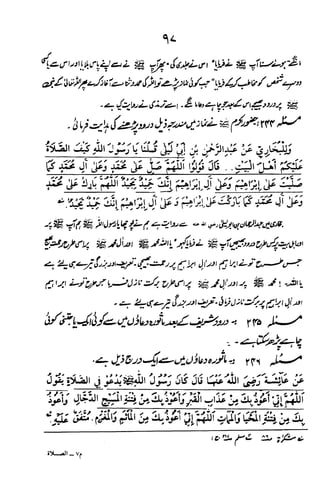 ۹۷
مانگتے ہوئے سنا آپ ﷺ نے فرمایا "اس نے جلدی کی" پھر آپ ﷺ نے اسے اپنے پاس بلایا اور اس سے یا کسی
دوسرے شخص کو مخاطب کر کے فرمایا "جب کوئی نماز پڑھے تو اللہ کی حمد و ثنا سے آغاز کرے پھر اللہ تعالیٰ کے نبی
ﷺ پر درود بھیجے اس کے بعد جو چاہے دعا مانگے۔ اسے ترمذی نے روایت کیا ہے۔
مسئلہ ۲۳۴: حضور اکرم ﷺ نے نماز میں مندرجہ ذیل درود پڑھنے کی ہدایت فرمائی۔
وَلِلْبُخَارِي عَنْ عَبْدِالرَّحْمٰنِ بْنِ اَبِي لَيْلٰى قُلْنَا يَا رَسُوْلَ اللّٰهِ كَيْفَ الصَّلَاةُ
عَلَيْكُمْ اَهْلَ الْبَيْتِ... قَالَ قُوْلُوْا اَللّٰهُمَّ صَلِّ عَلٰى مُحَمَّدٍ وَعَلٰى اٰلِ مُحَمَّدٍ كَمَا
صَلَّيْتَ عَلٰى اِبْرَاهِيْمَ وَعَلٰى اٰلِ اِبْرَاهِيْمَ اِنَّكَ حَمِيْدٌ مَّجِيْدٌ اَللّٰهُمَّ بَارِكْ عَلٰى مُحَمَّدٍ
وَعَلٰى اٰلِ مُحَمَّدٍ كَمَا بَارَكْتَ عَلٰى اِبْرَاهِيْمَ وَعَلٰى اٰلِ اِبْرَاهِيْمَ اِنَّكَ حَمِيْدٌ مَّجِيْدٌ
بخاری میں عبدالرحمان بن ابی لیلیٰ سے روایت ہے ہم نے پوچھا یا رسول اللہ ﷺ ہم آپ پر
اور اہل بیت پر کس طرح درود بھیجیں آپ ﷺ نے فرمایا کہو "یا اللہ محمد ﷺ اور آل محمد پر اسی طرح رحمت بھیج
جس طرح تو نے ابراہیم اور آل ابراہیم پر رحمت بھیجی، تعریف اور بزرگی تیرے ہی لئے ہے
یا اللہ! محمد ﷺ پر اور آل محمد ﷺ پر اسی طرح برکت نازل فرما جس طرح تو نے ابراہیم
اور آل ابراہیم پر برکت نازل فرمائی، تعریف اور بزرگی تیرے ہی لئے ہے۔
مسئلہ ۲۳۵: درود شریف کے بعد ماثورہ دعاؤں میں سے کوئی ایک یا جتنی کوئی
چاہے پڑھ سکتا ہے۔
مسئلہ ۲۳۶: ماثورہ دعاؤں میں سے ایک درج ذیل ہے۔
عَنْ عَائِشَةَ رَضِيَ اللّٰهُ عَنْهَا قَالَ كَانَ رَسُوْلُ اللّٰهِ ﷺ يَدْعُوْ فِي الصَّلَاةِ يَقُوْلُ
اَللّٰهُمَّ اِنِّيْ اَعُوْذُ بِكَ مِنْ عَذَابِ الْقَبْرِ وَاَعُوْذُ بِكَ مِنْ فِتْنَةِ الْمَسِيْحِ الدَّجَّالِ وَاَعُوْذُ
بِكَ مِنْ فِتْنَةِ الْمَحْيَا وَالْمَمَاتِ اَللّٰهُمَّ اِنِّيْ اَعُوْذُ بِكَ مِنَ الْمَأْثَمِ وَالْمَغْرَمِ. مُتَّفَقٌ عَلَيْهِ
م۷ – الصلاة